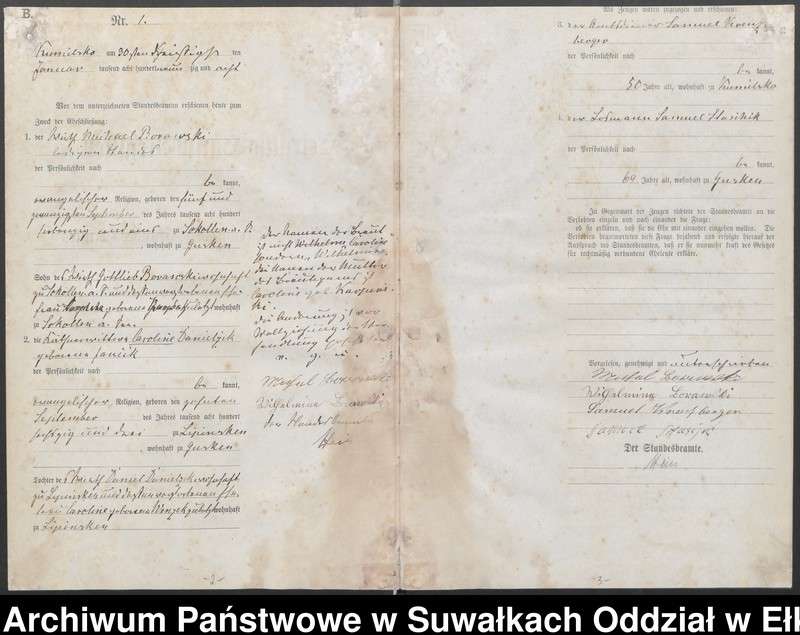 B.
Nr. 1.
Kumilsko am 30sten Dreißigsten
Januar tausend acht hundert neunzig und acht
Vor dem unterzeichneten Standesbeamten erschienen heute zum
Zweck der Eheschließung:
1. der Wirth Michael Borawski
ledigen Standes
der Persönlichkeit nach
be kannt,
evangelischer Religion, geboren den fünf und
zwanzigsten September des Jahres tausend acht hundert
siebenzig und eins zu Sokollen a. S.
, wohnhaft zu Gursken
Sohn des Wirth Gottlieb Borawski wohnhaft
zu Sokollen a. S. und dessen Ehe-
frau geborene wohnhaft
zu Sokollen a. See.
2. die Käthnerwittwe Caroline Danielzik
geborene Janick
der Persönlichkeit nach
be kannt,
evangelischer Religion, geboren den zehnten
September des Jahres tausend acht hundert
sechszig und drei zu Lipinsken
, wohnhaft zu Gursken
Tochter des Wirth Daniel Danielzik wohnhaft
zu Lipinsken und dessen Ehe-
frau Caroline geborene wohnhaft
zu Lipinsken
Der Namen der Braut
ist nicht Wilhelmine Caroline
sondern Wilhelmine,
die Namen der Mutter
des Bräutigams ist
Caroline geb.
Die Änderung ist vor
Vollziehung der Ver-
handlung
v. g. u.
Michal Borawski
Wilhelmina Borawski
Der Standesbeamte
Hein
-2-
Als Zeugen waren zugezogen und erschienen:
3. der Samuel Krenz-
berger
der Persönlichkeit nach
be kannt,
50 Jahre alt, wohnhaft zu Kumilsko
4. der Losmann Samuel Stasik
der Persönlichkeit nach
be kannt,
69 Jahre alt, wohnhaft zu Gursken
In Gegenwart der Zeugen richtete der Standesbeamte an die
Verlobten einzeln und nach einander die Frage:
ob sie erklären, daß sie die Ehe mit einander eingehen wollen. Die
Verlobten beantworteten diese Frage bejahend und erfolgte hierauf der
Ausspruch des Standesbeamten, daß er sie nunmehr kraft des Gesetzes
für rechtmäßig verbundene Eheleute erkläre.
Vorgelesen, genehmigt und unterschrieben
Michal Borawski
Wilhelmina Borawski
Samuel
Samuel
Der Standesbeamte.
Hein
-3-
Archiwum Państwowe w Suwałkach Oddział w Ełk